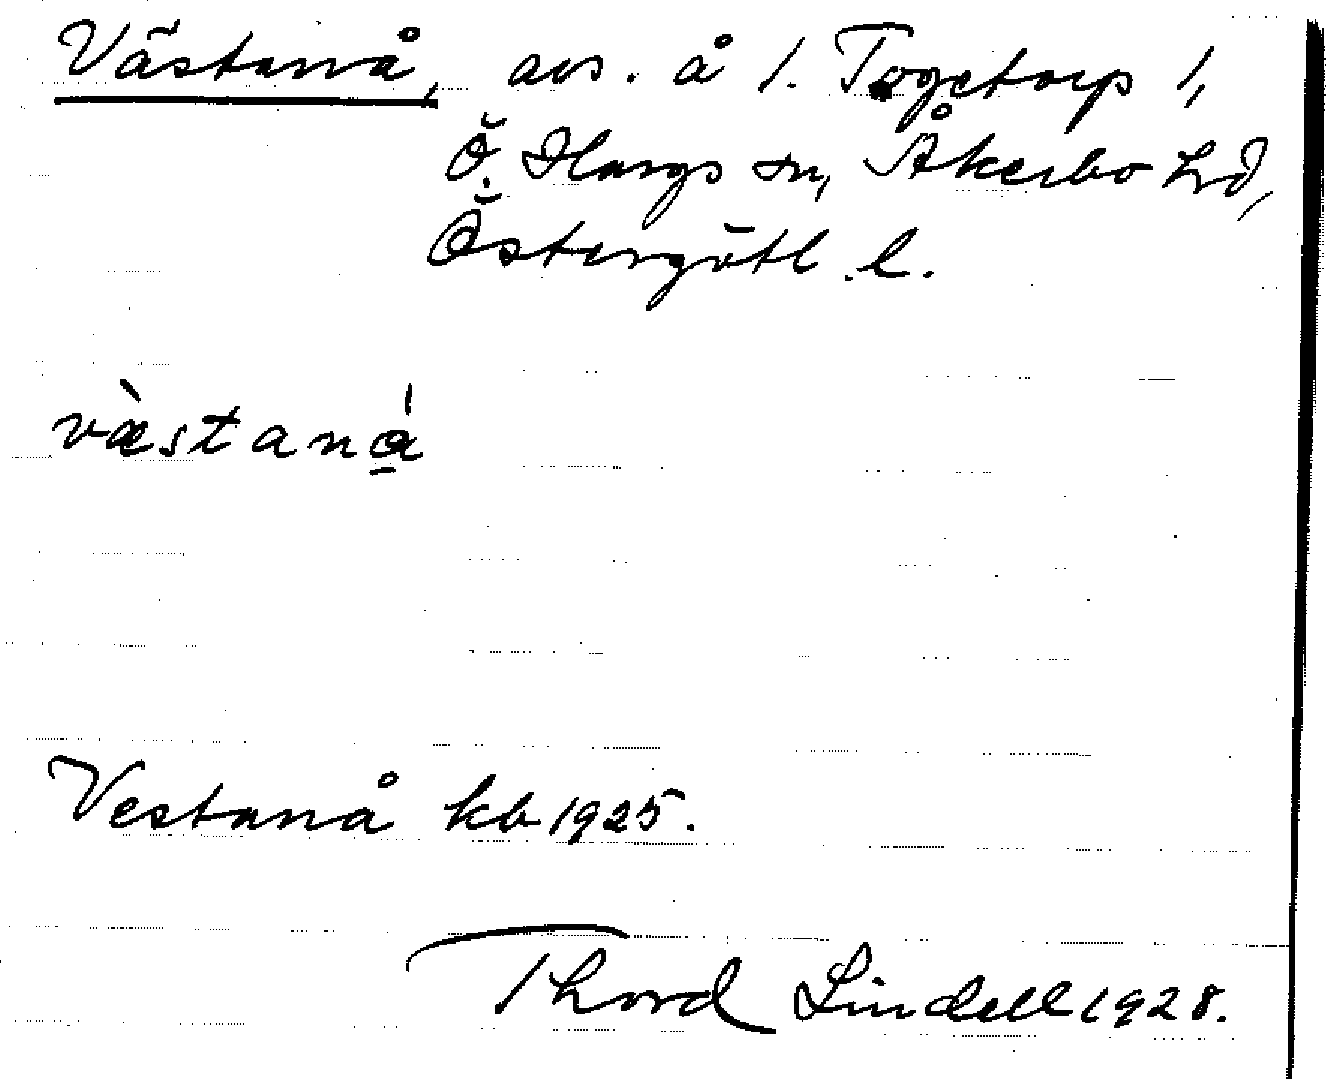 Västanå, avs. å 1. Togetorp 1,
Ö. Hargs sn, Åkerbo hd,
Östergötl. l.
vàstaná̱
Vestanå kb 1925.
Thord Lindell 1928.